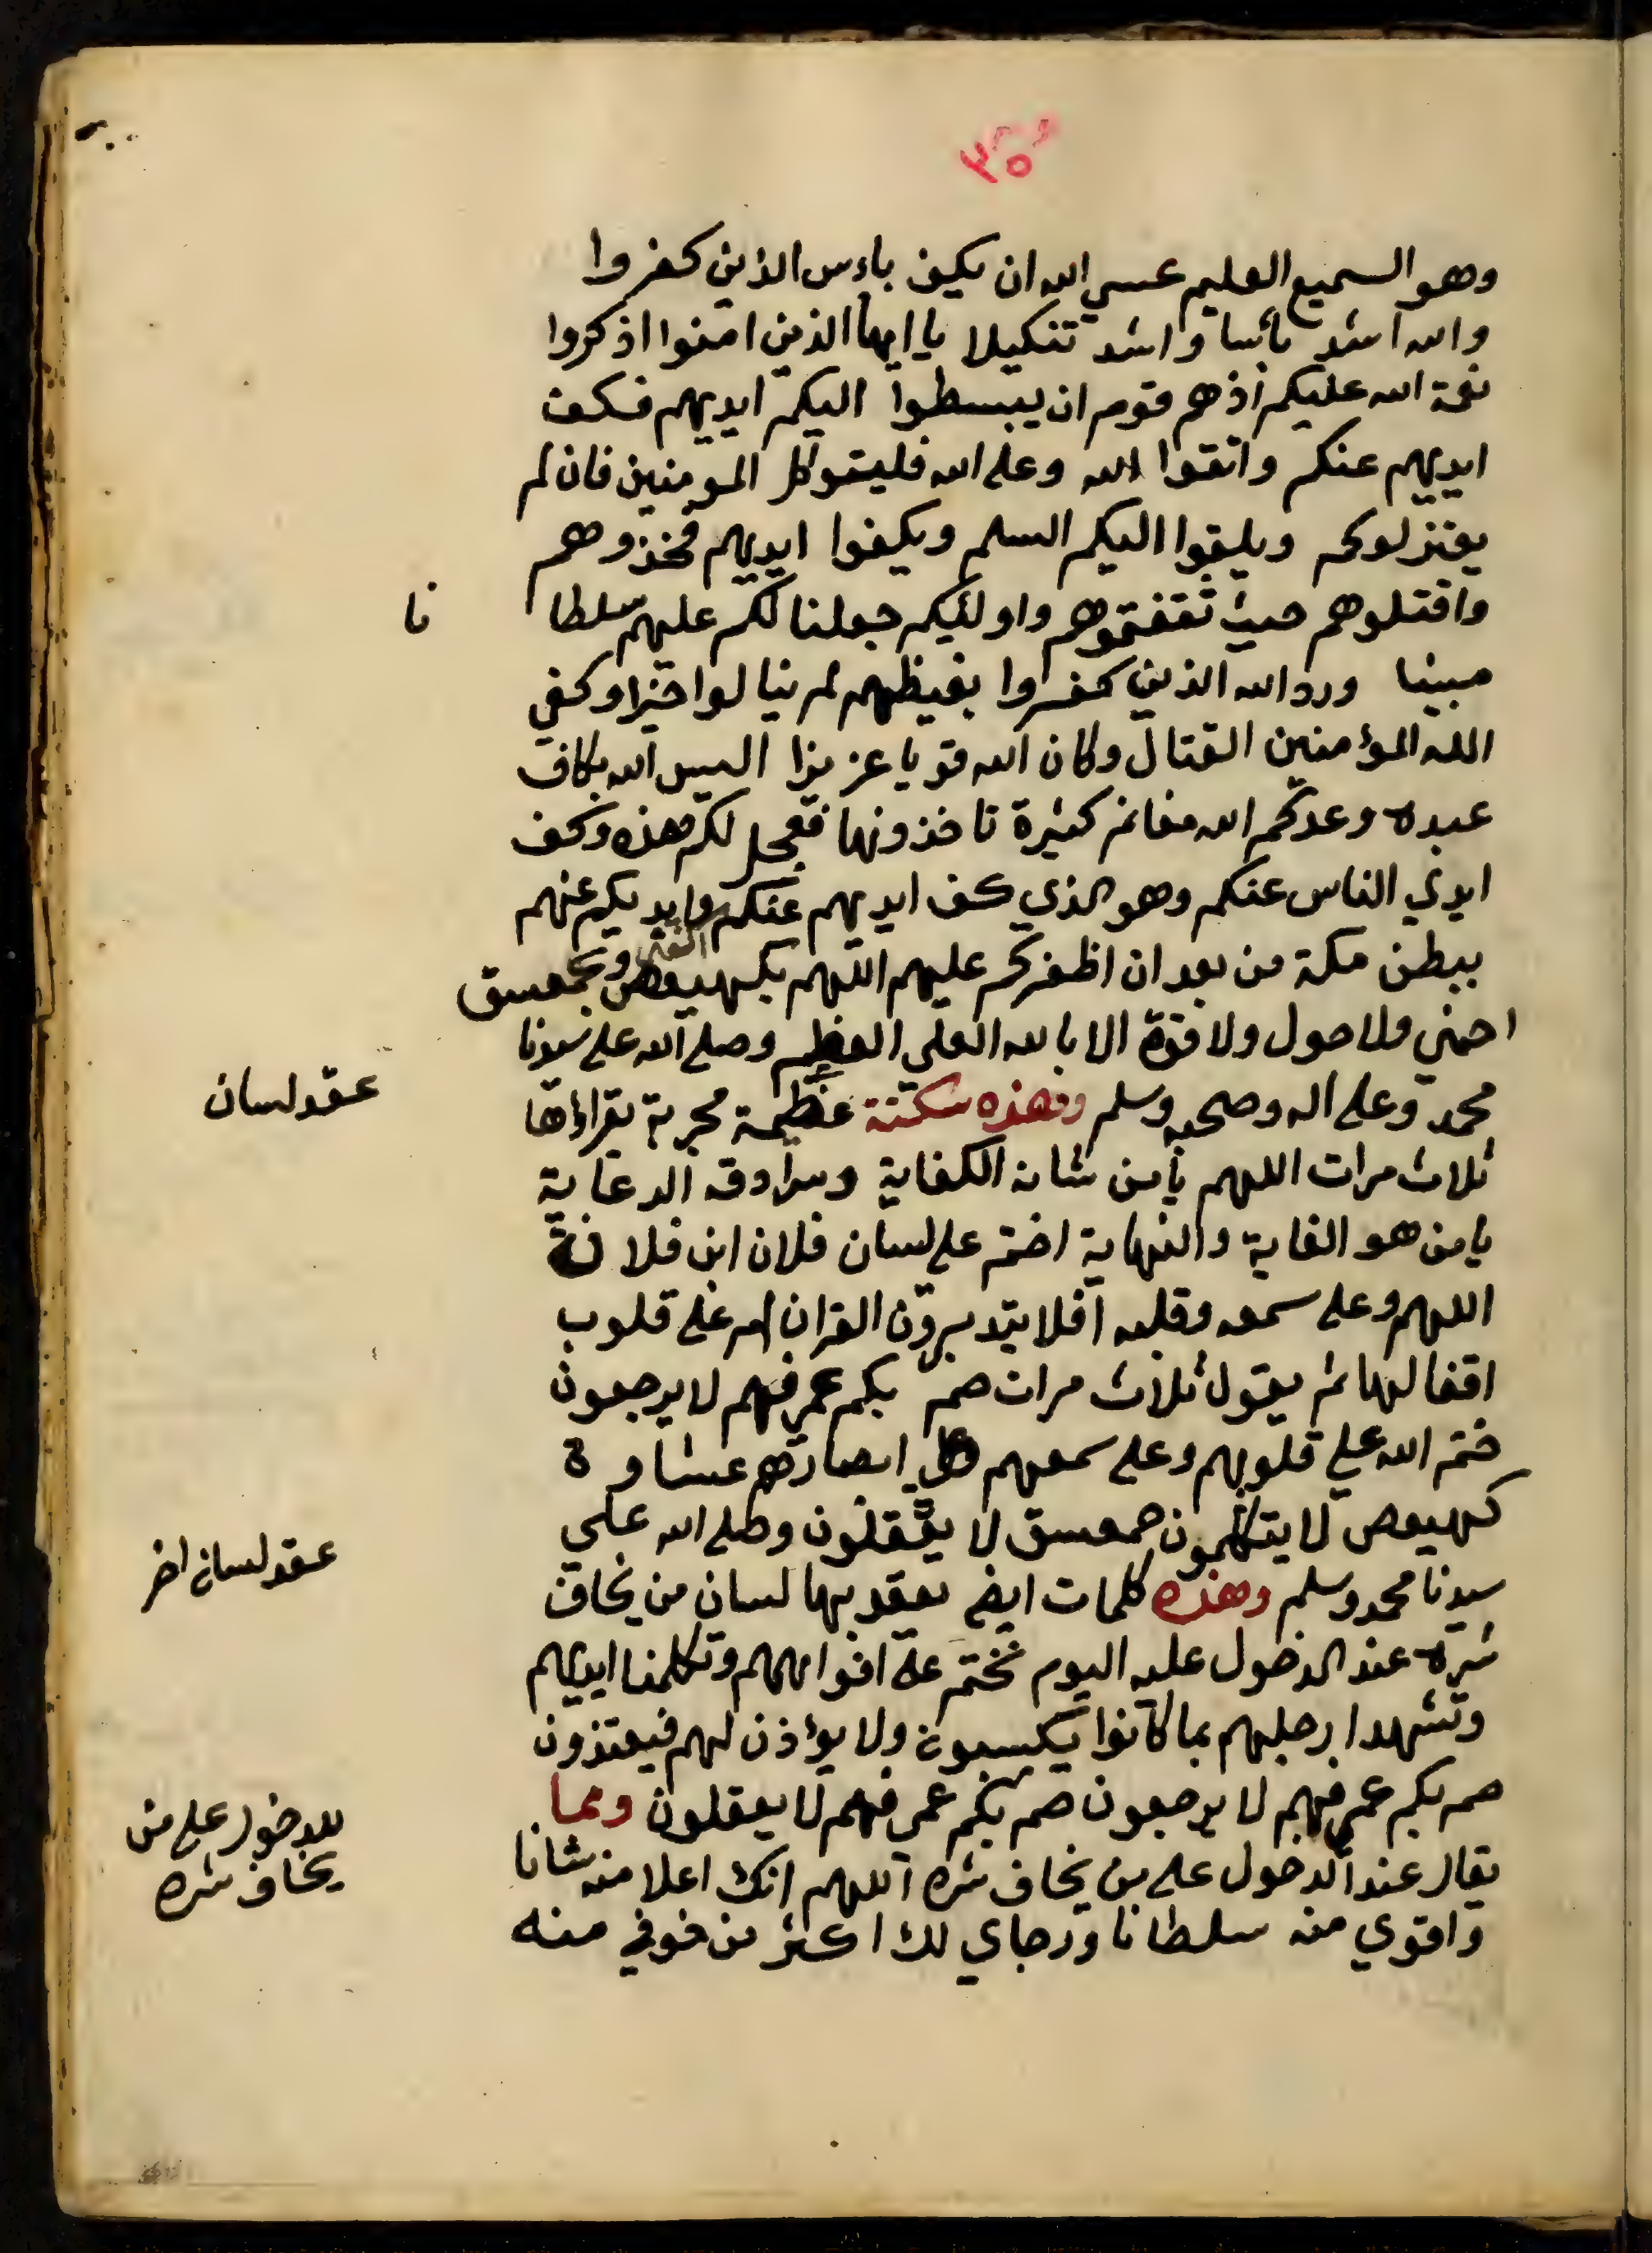 وهو السميع العليم عسي الله ان يكف باءس الذين كفروا
والله اشد بأسا واشد تنكيلا يا ايها الذين امنوا اذكروا
نعمة الله عليكم اذ هم قوم ان يبسطوا اليكم ايديهم فكف
ايديهم عنكم واتقوا الله وعلى الله فليتوكل المومنين فان لم
يعتزلوكم ويلقوا اليكم السلم ويكفوا ايديهم فخذوهم
واقتلوهم حيث ثقفتموهم واولئيكم جعلنا لكم عليهم سلطا نا
مبينا ورد الله الذين كفروا بغيظهم لم ينالوا خيرا وكفي
الله المؤمنين القتال وكان الله قويا عزيزا اليس الله بكاف
عبده وعدكم الله مغانم كثيرة تاخذونها فعجل لكم هذه وكف
ايدي الناس عنكم وهو الذي كف ايديهم عنكم وايديكم عنهم
ببطن مكة من بعد ان اظفركم عليهم اللهم بكهيعص وبحمعسق
احمني ولا حول ولا قوة الا بالله العلي العظيم وصلى الله على سيدنا
محمد وعلى اله وصحبه وسلم وهذه سكتة عظيمة مجربة تقراؤها
عقد لسان
ثلاث مرات اللهم يا من شانه الكفاية وسرادقه الرعاية
يا من هو الغاية والنهاية اختم على لسان فلان ابن فلانة
اللهم وعلى سمعه وقلبه افلا يتدبرون القران ام على قلوب
اقفالها ثم يقول ثلاث مرات صم بكم عمي فهم لا يرجعون
ختم الله علي قلوبهم وعلى سمعهم وعلى ابصارهم غشاوة
كهيعص لا يتكلمون حمعسق لا يعقلون وصلى الله علي
عقد لسان اخر
سيدنا محمد وسلم وهذه كلمات ايض يعقد بها لسان من يخاف
شره عند الدخول عليه اليوم نختم على افواههم وتكلمنا ايديهم
وتشهد ارجلهم بما كانوا يكسبون ولا يؤذن لهم فيعتذرون
صم بكم عمي فهم لا يرجعون صم بكم عمي فهم لا يعقلون ومما
للدخول على من
يخاف شره
يقال عند الدخول على من يخاف شره اللهم انك اعلا منه شانا
واقوي منه سلطانا ورجاي لك اكثر من خوفي منه